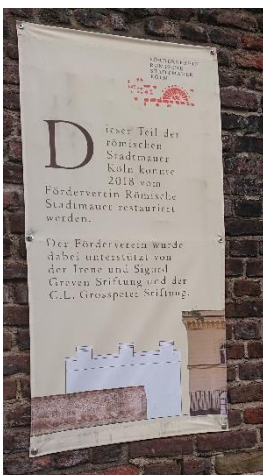 FÖRDERVEREIN
RÖMISCHE
STADTMAUER
KÖLN
Dieser Teil der
römischen
Stadtmauer
Köln konnte
2018 vom
Förderverein Römische
Stadtmauer restauriert
werden.
Der Förderverein wurde
dabei unterstützt von
der Irene und Sigurd
Greven Stiftung und der
C.L. Grosspeter Stiftung.